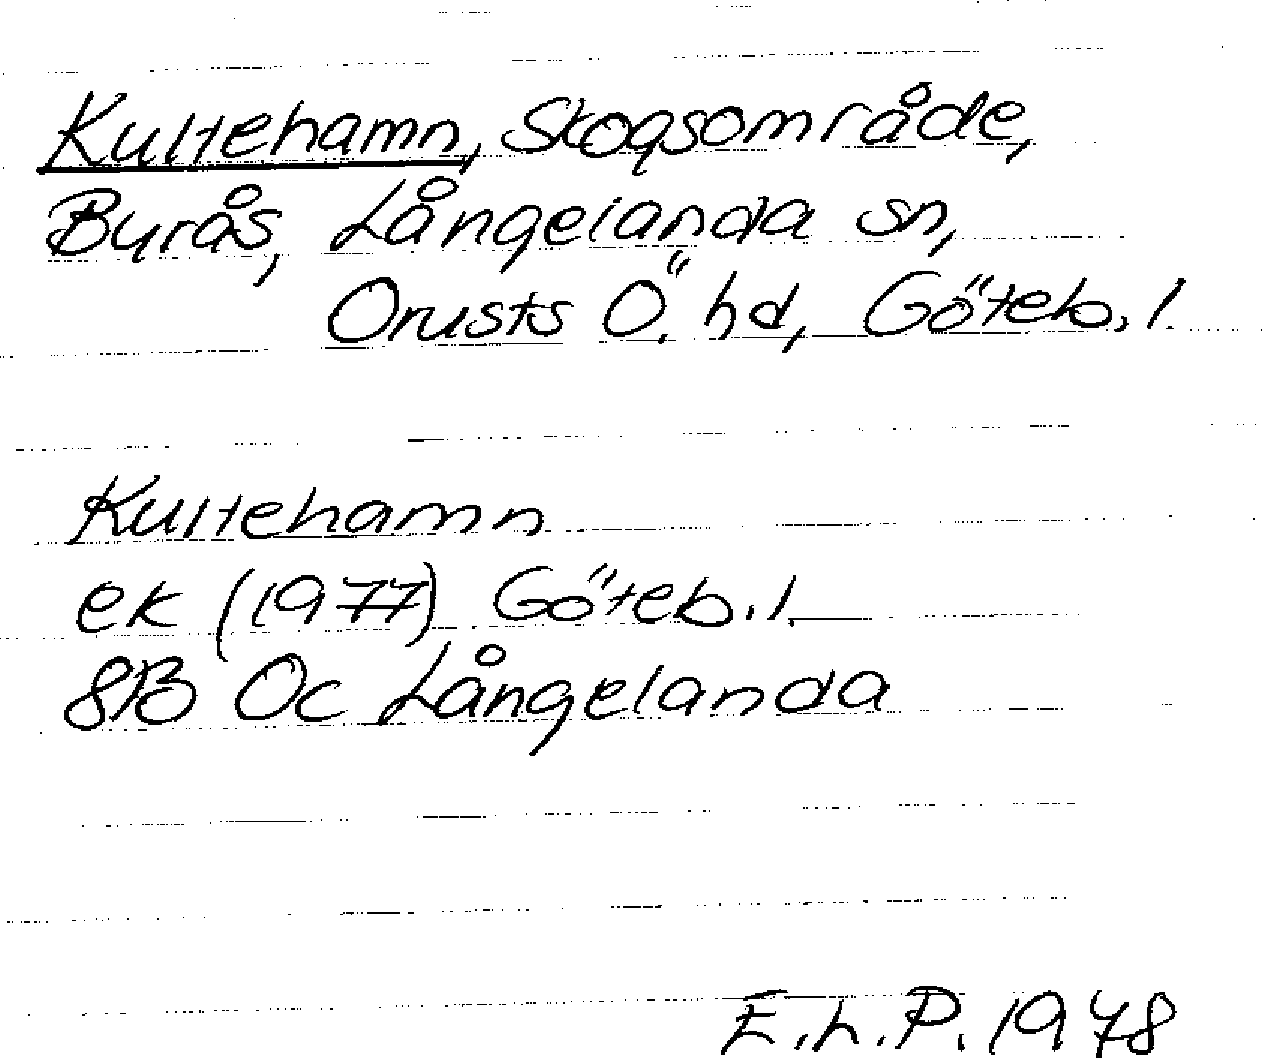 Kultehamn, Skogsområde,
Burås, Långelanda sn,
Orusts Ö. hd, Göteb. l.
Kultehamn
ek (1977) Göteb. l.
8B 0c Långelanda
E.L.P. 1978